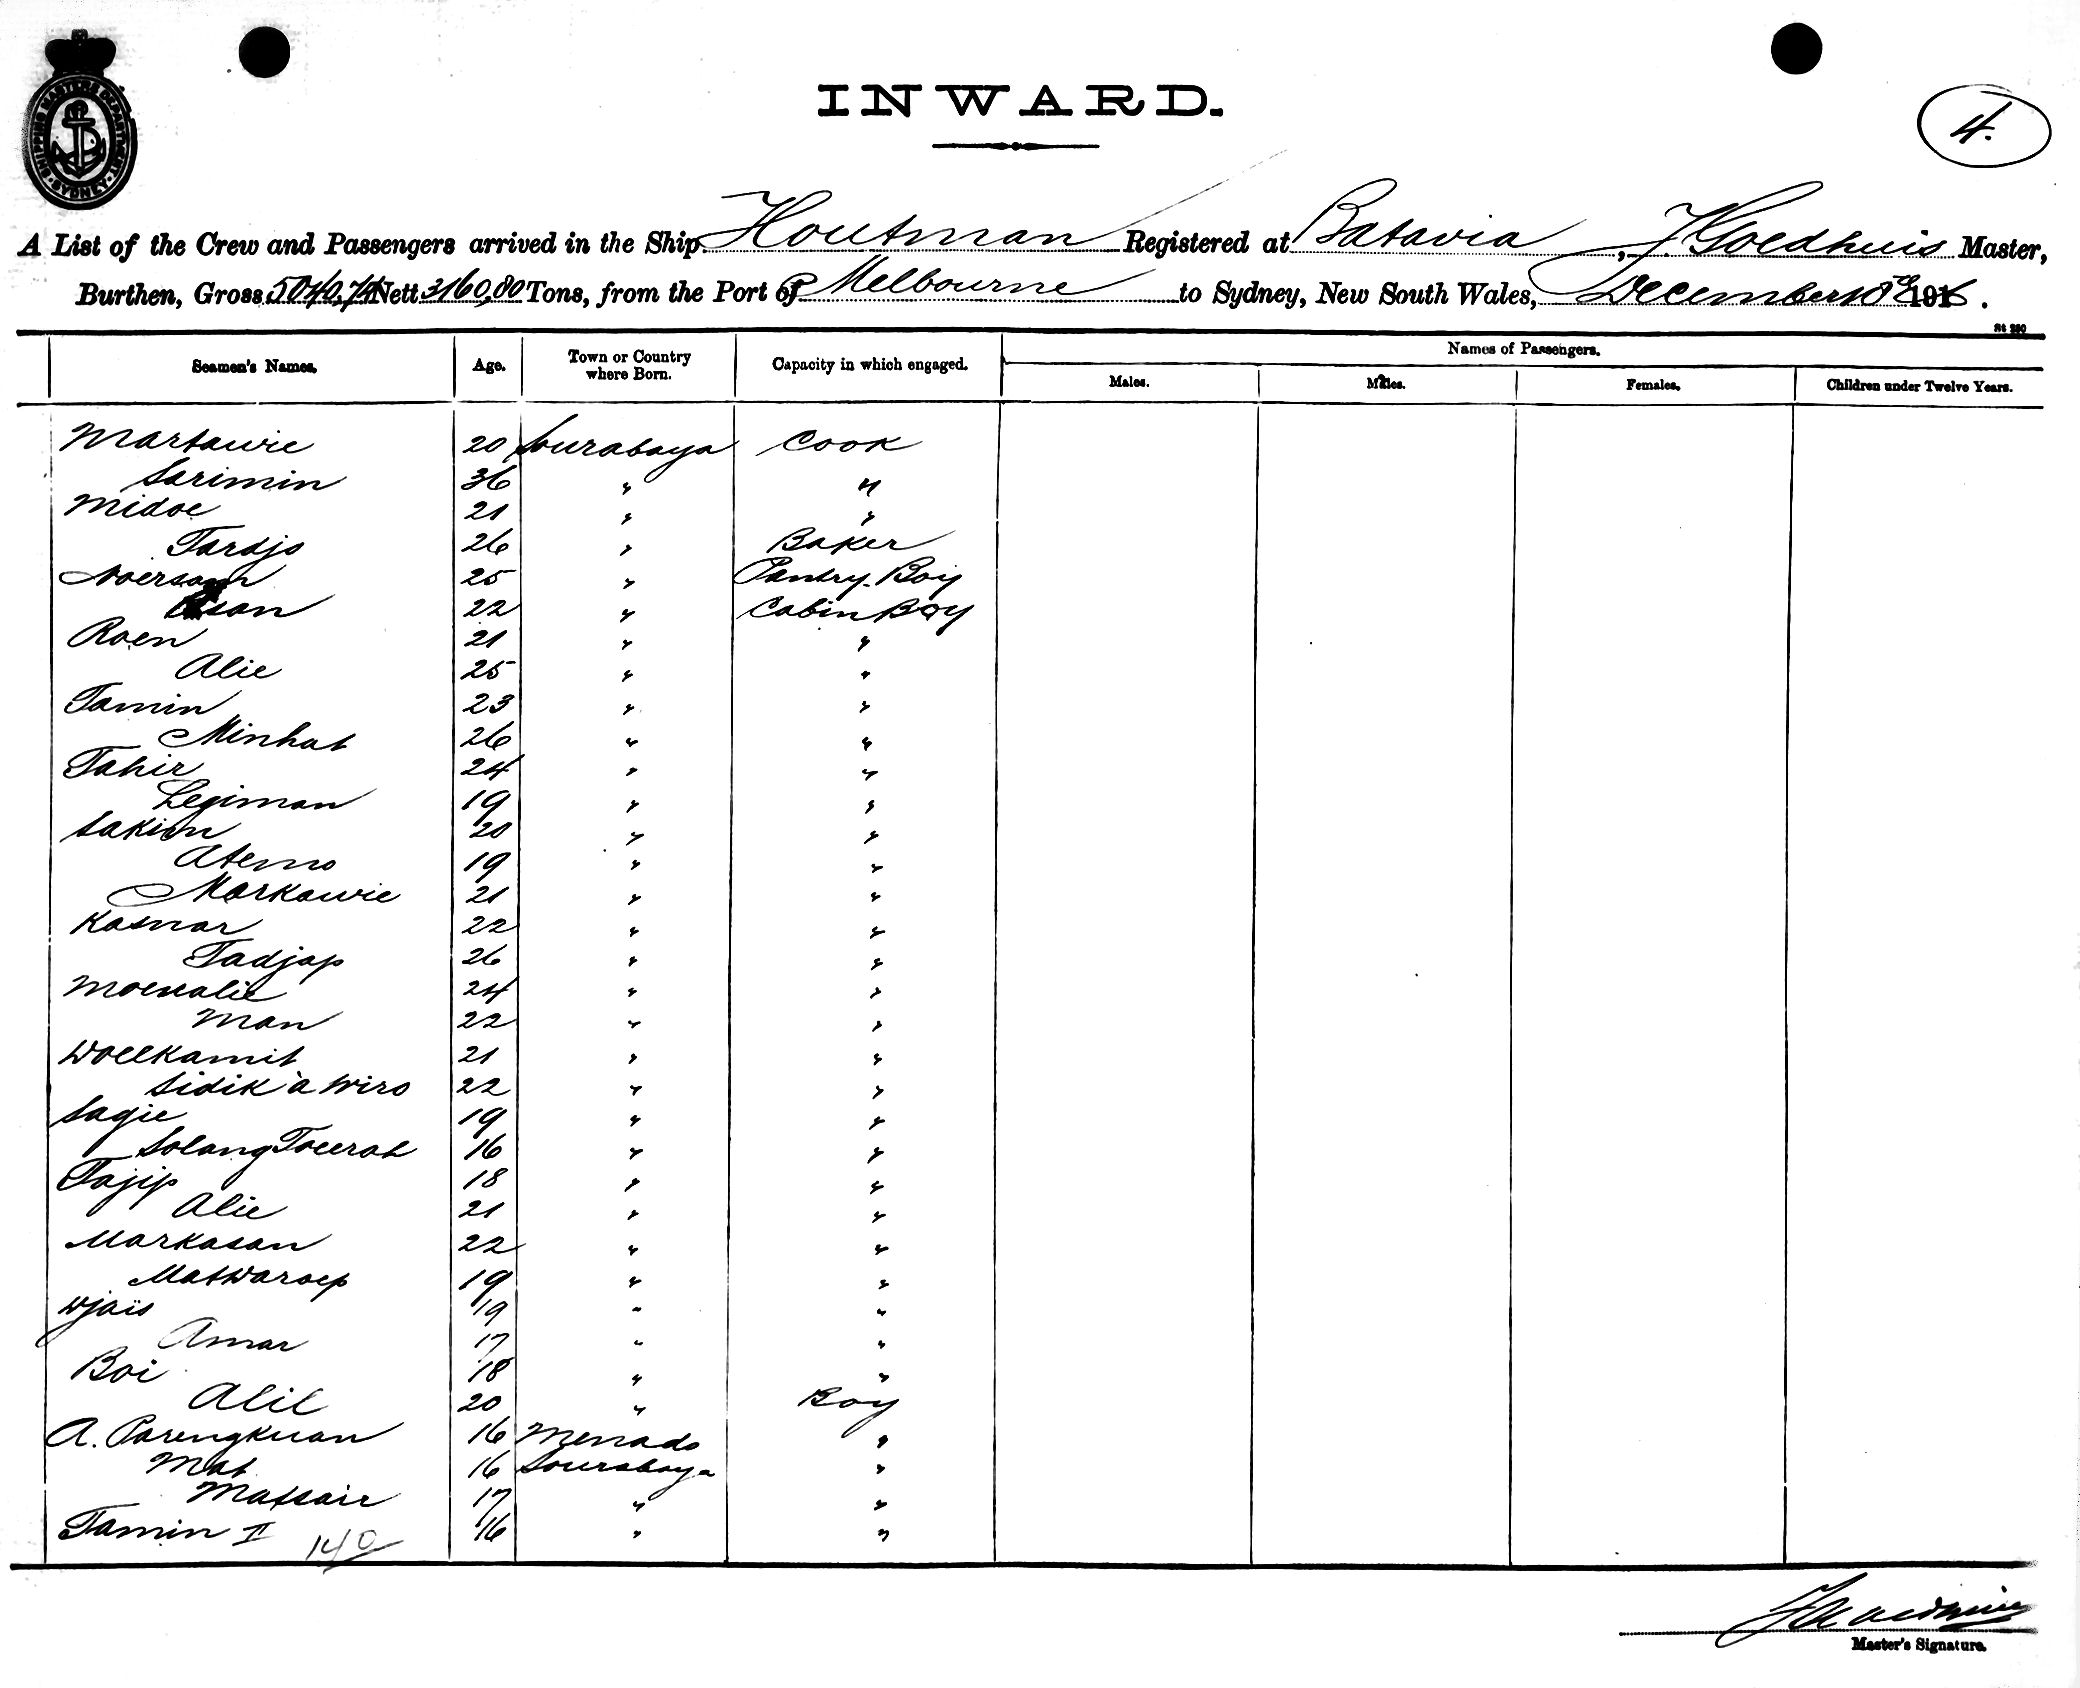 SHIPPING MASTERS DEPARTMENT. SYDNEY
INWARD.
4.
A List of the Crew and Passengers arrived in the Ship Houtman Registered at Batavia, J Goedhuis Master,
Burthen, Gross 5040,74 Nett 3160,80 Tons, from the Port of Melbourne to Sydney, New South Wales, December 10th 1916.
St 250
Seamen's Names. Age. Town or Country where Born. Capacity in which engaged. Names of Passengers.
Males. Males. Females. Children under Twelve Years.
Martawie 20 Sourabaya Cook
Sarimin 36 " "
Midoe 21 " "
Tardjo 26 " Baker
Noersan 25 " Pantry-Boy
22 " Cabin Boy
Roen 21 " "
Alie 25 " "
Tamin 23 " "
Minhat 26 " "
Tahir 24 " "
Legiman 19 " "
Sakim 20 " "
Atemo 19 " "
Markawie 21 " "
Kasnar 22 " "
Tadjap 26 " "
Moenalie 24 " "
Man 22 " "
Woelkamit 21 " "
Sidik à Wiro 22 " "
Sagie 19 " "
Solang Toerat 16 " "
Tajip 18 " "
Alie 21 " "
Markasan 22 " "
Matwaroep 19 " "
Wjaïs 19 " "
Amar 17 " "
Boi 18 " "
Alil 20 " Boy
A. Parengkuan 16 Menado "
Mat 16 Sourabaya "
Matsair 17 " "
Tamin II 16 " "
140
Master's Signature.